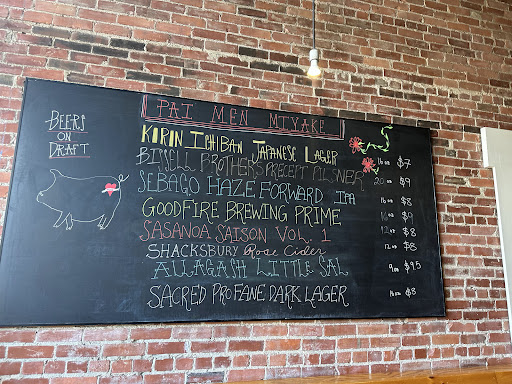 PAI MEN MIYAKE
BEERS
ON
DRAFT
KIRIN ICHIBAN JAPANESE LAGER 16 oz $7
BISSELL BROTHERS PRECEPT PILSNER 20 oz $9
SEBAGO HAZE FORWARD IPA 16 oz $8
GOODFIRE BREWING PRIME 16 oz $9
SASANOA SAISON VOL. 1 12 oz $8
SHACKSBURY Rose Cider 12 oz $8
ALLAGASH LITTLE SAL 9 oz $9.5
SACRED PROFANE DARK LAGER 16 oz $8